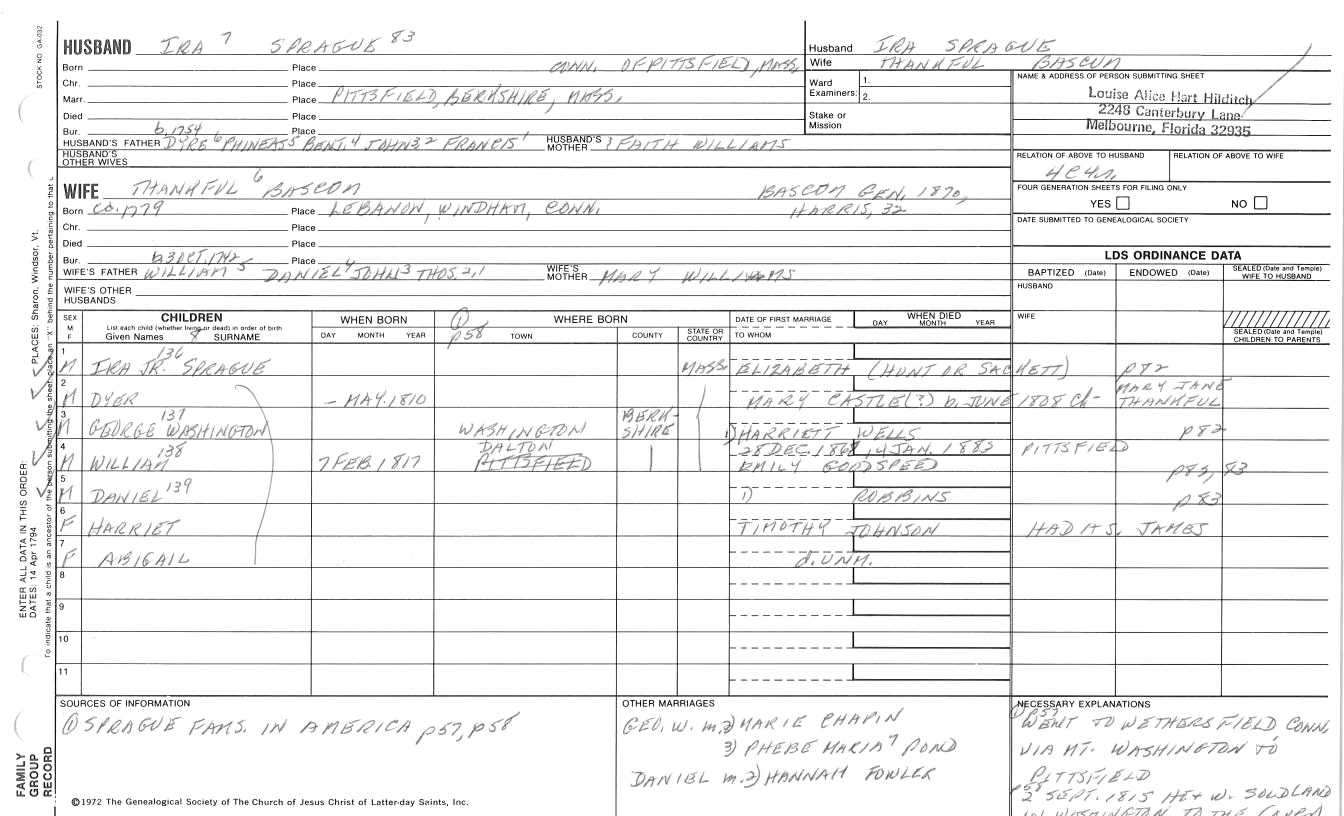 STOCK NO. GA-032
HUSBAND IRA 7 SPRAGUE 83
Born Place CONN. OF PITTSFIELD, MASS,
Chr. Place
Marr. Place PITTSFIELD, BERKSHIRE, MASS.
Died Place
Bur. b. 1754 Place
HUSBAND'S FATHER DYRE 6 PHINEAS 5 BENJ. 4 JOHN 3, 2 FRANCIS 1 HUSBAND'S MOTHER FAITH WILLIAMS
HUSBAND'S OTHER WIVES
Husband IRA SPRAGUE
Wife THANKFUL BASCOM
Ward Examiners: 1.
2.
Stake or Mission
NAME & ADDRESS OF PERSON SUBMITTING SHEET
Louise Alice Hart Hilditch
2248 Canterbury Lane
Melbourne, Florida 32935
RELATION OF ABOVE TO HUSBAND RELATION OF ABOVE TO WIFE
FOUR GENERATION SHEETS FOR FILING ONLY
YES NO
DATE SUBMITTED TO GENEALOGICAL SOCIETY
WIFE THANKFUL 6 BASCOM BASCOM GEN. 1870,
Born ca. 1779 Place LEBANON, WINDHAM, CONN. HARRIS, 32
Chr. Place
Died Place
Bur. b. 3 OCT. 1742 Place
WIFE'S FATHER WILLIAM 5 DANIEL 4 JOHN 3 THOS. 2, 1 WIFE'S MOTHER MARY WILLIAMS
WIFE'S OTHER HUSBANDS
LDS ORDINANCE DATA
BAPTIZED (Date) ENDOWED (Date) SEALED (Date and Temple) WIFE TO HUSBAND
HUSBAND
WIFE
SEALED (Date and Temple) CHILDREN TO PARENTS
SEX M F
CHILDREN
List each child (whether living or dead) in order of birth
Given Names 8 SURNAME
WHEN BORN
DAY MONTH YEAR
1 p58
WHERE BORN
TOWN COUNTY STATE OR COUNTRY
DATE OF FIRST MARRIAGE
TO WHOM
WHEN DIED
DAY MONTH YEAR
1 M IRA JR. SPRAGUE 136 MASS. ELIZABETH (HUNT OR SACKETT) p82
2 M DYER - MAY. 1810 MARY CASTLE(?) b. JUNE 1808 Ch- MARY JANE THANKFUL
3 M GEORGE WASHINGTON 137 WASHINGTON BERKSHIRE 1) HARRIETT WELLS p82
4 M WILLIAM 138 7 FEB. 1817 DALTON PITTSFIELD 28 DEC. 1868, 4 JAN. 1883 PITTSFIELD
EMILY GOODSPEED p83, 83
5 M DANIEL 139 1) ROBBINS p83
6 F HARRIET TIMOTHY JOHNSON HAD A S. JAMES
7 F ABIGAIL d. UNM.
8
9
10
11
SOURCES OF INFORMATION
1 SPRAGUE FAMS. IN AMERICA p57, p58
OTHER MARRIAGES
GEO. W. m. 2) MARIE CHAPIN
3) PHEBE MARIA 7 POND
DANIEL m. 2) HANNAH FOWLER
NECESSARY EXPLANATIONS
p57
WENT TO WETHERSFIELD CONN,
VIA MT. WASHINGTON TO
PITTSFIELD
p58 2 SEPT. 1815 HE + W. SOLD LAND
IN WASHINGTON TO THE
©1972 The Genealogical Society of The Church of Jesus Christ of Latter-day Saints, Inc.
FAMILY GROUP RECORD
ENTER ALL DATA IN THIS ORDER:
DATES: 14 Apr 1794
PLACES: Sharon, Windsor, Vt.
To indicate that a child is an ancestor of the person submitting the sheet, place an "X" behind the number pertaining to that c